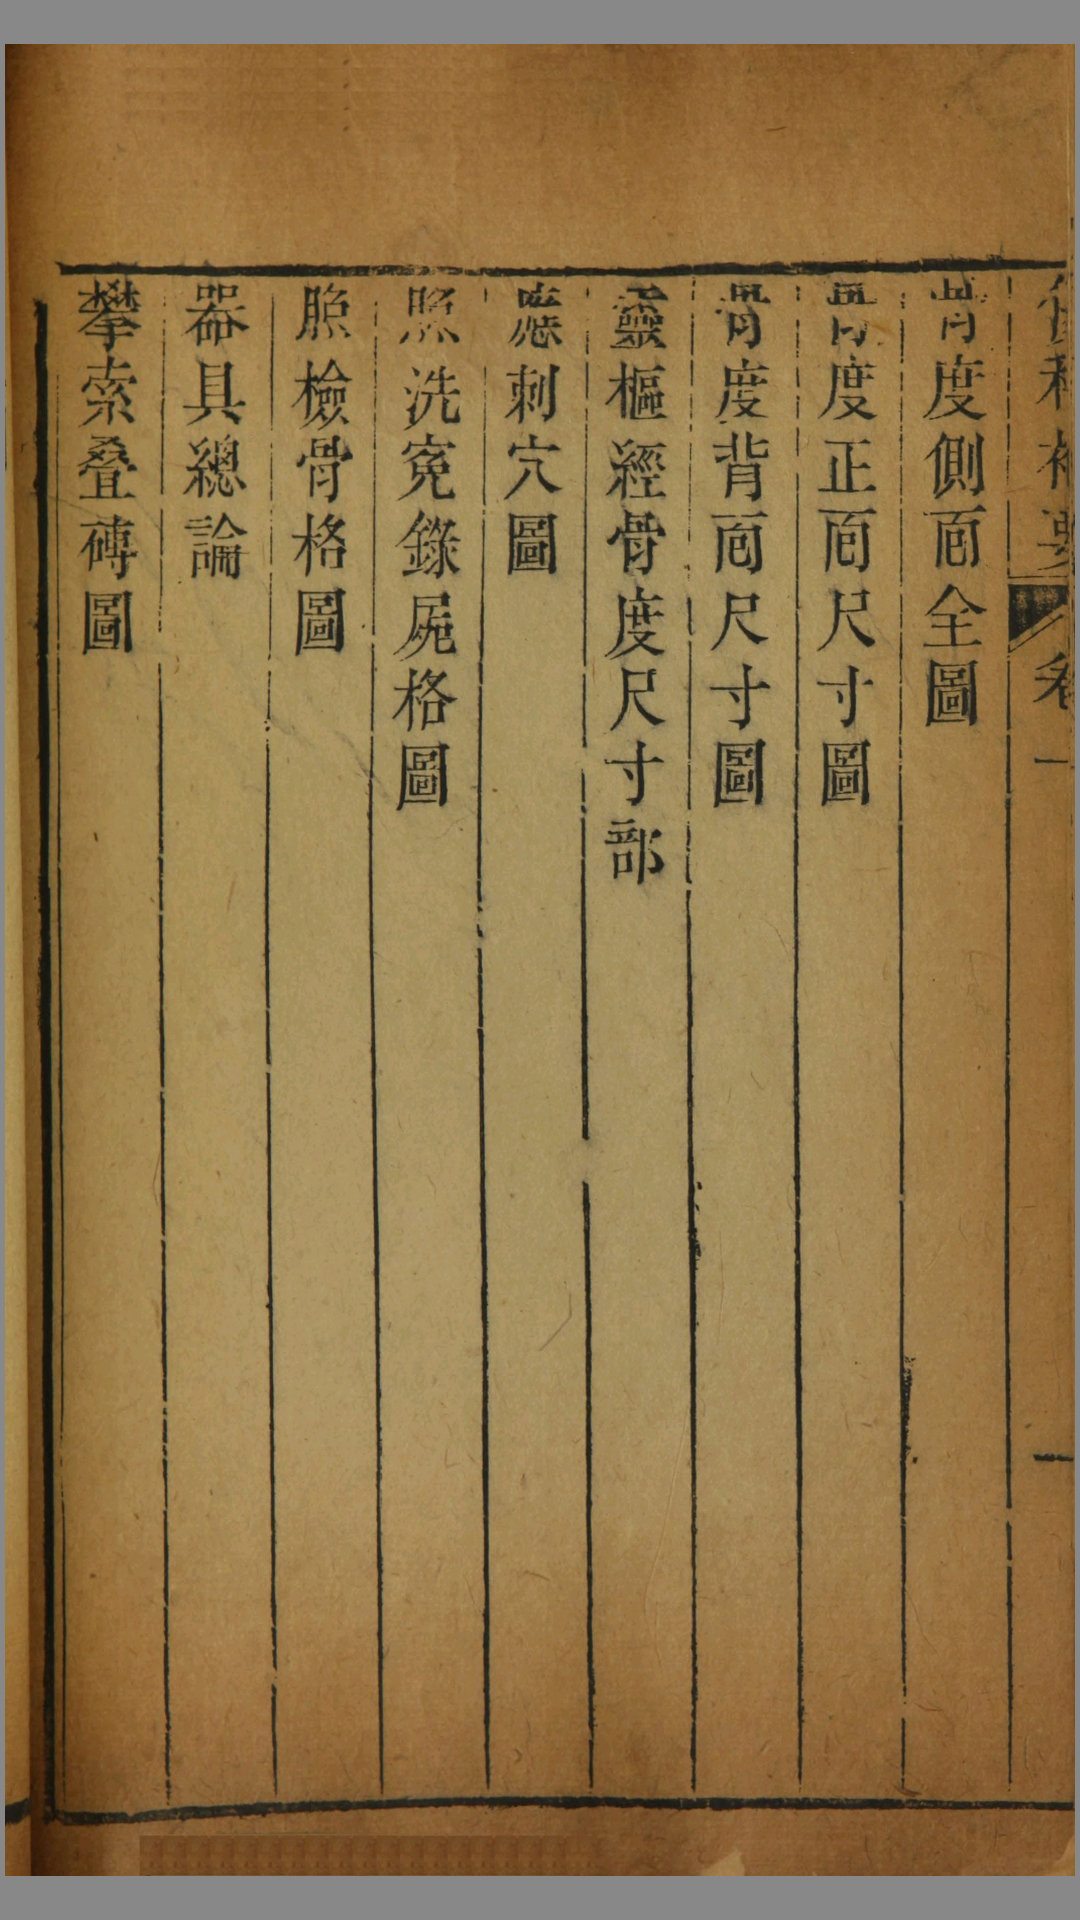 傷科補要 卷一 一
骨度側面全圖
骨度正面尺寸圖
骨度背面尺寸圖
靈樞經骨度尺寸部
應刺穴圖
照洗寃錄屍格圖
照檢骨格圖
器具總論
攀索疊磚圖